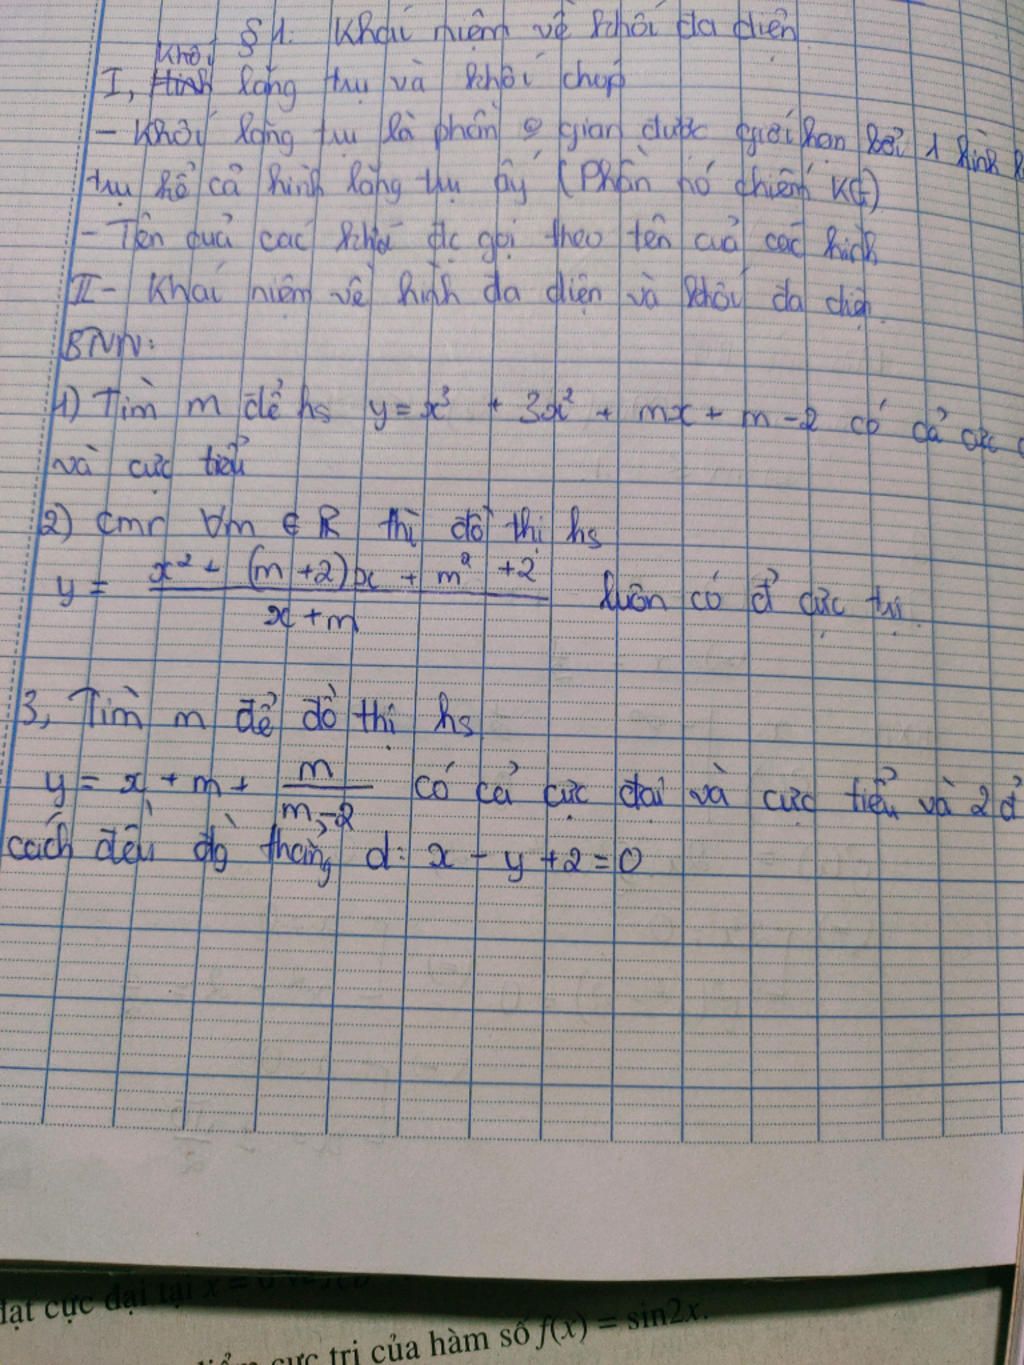 §1. Khái niệm về khối đa diện
Khối
I, Hình lăng trụ và khối chóp
- Khối lăng trụ là phần o gian được giới hạn bởi 1 hình
trụ kể cả hình lăng trụ ấy (Phần nó chiếm KG)
- Tên của các khối đc gọi theo tên của các hình
II - Khái niệm về hình đa diện và khối đa diện
BTVN:
1) Tìm m để hs y = x³ + 3x² + mx + m - 2 có cả cực
và cực tiểu
2) Cmr ∀m ∈ R thì đồ thị hs
y = (x² + (m + 2)x + m² + 2) / (x + m) luôn có đ cực trị
3, Tìm m để đồ thị hs
y = x + m + m / (m - 2) có cả cực đại và cực tiểu và 2 đ
cách đều đg thẳng d: x - y + 2 = 0
đạt cực đại tại x = 0
cực trị của hàm số f(x) = sin2x.